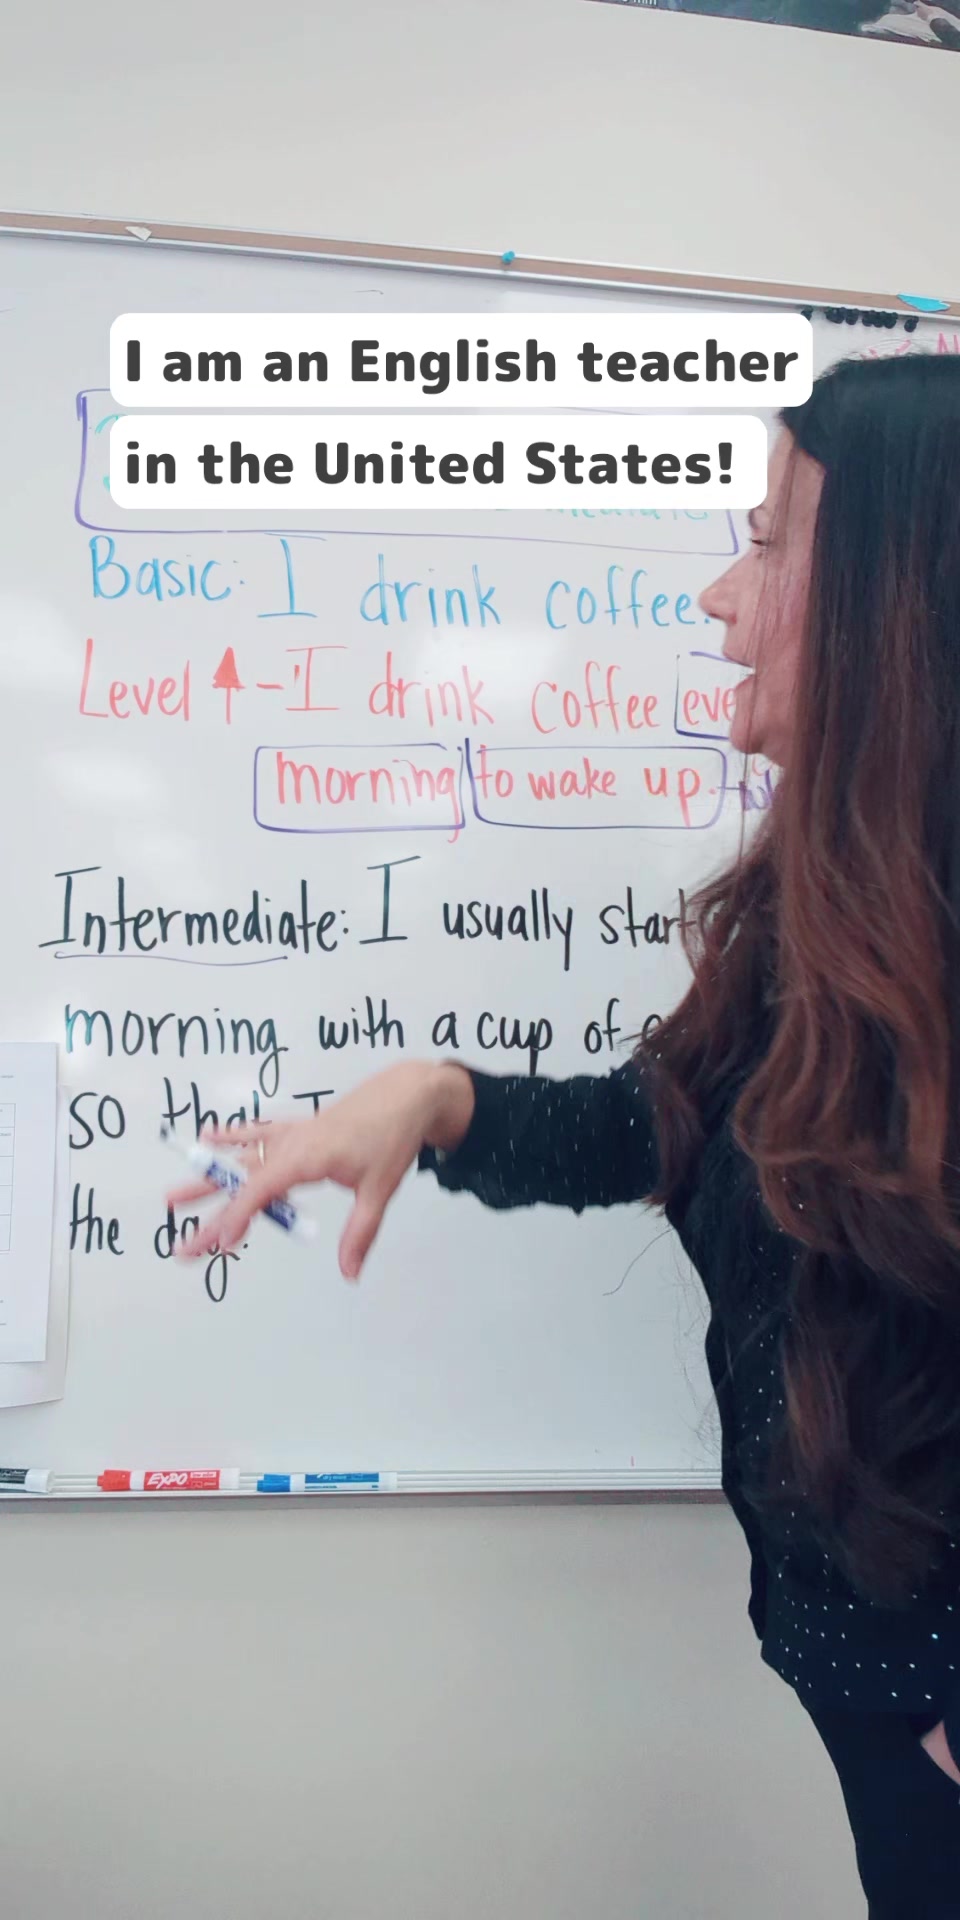 I am an English teacher
in the United States!
Basic: I drink coffee.
Level ↑ - I drink coffee
morning to wake up.
Intermediate: I usually start
morning with a cup of
so that I
the day.
EXPO